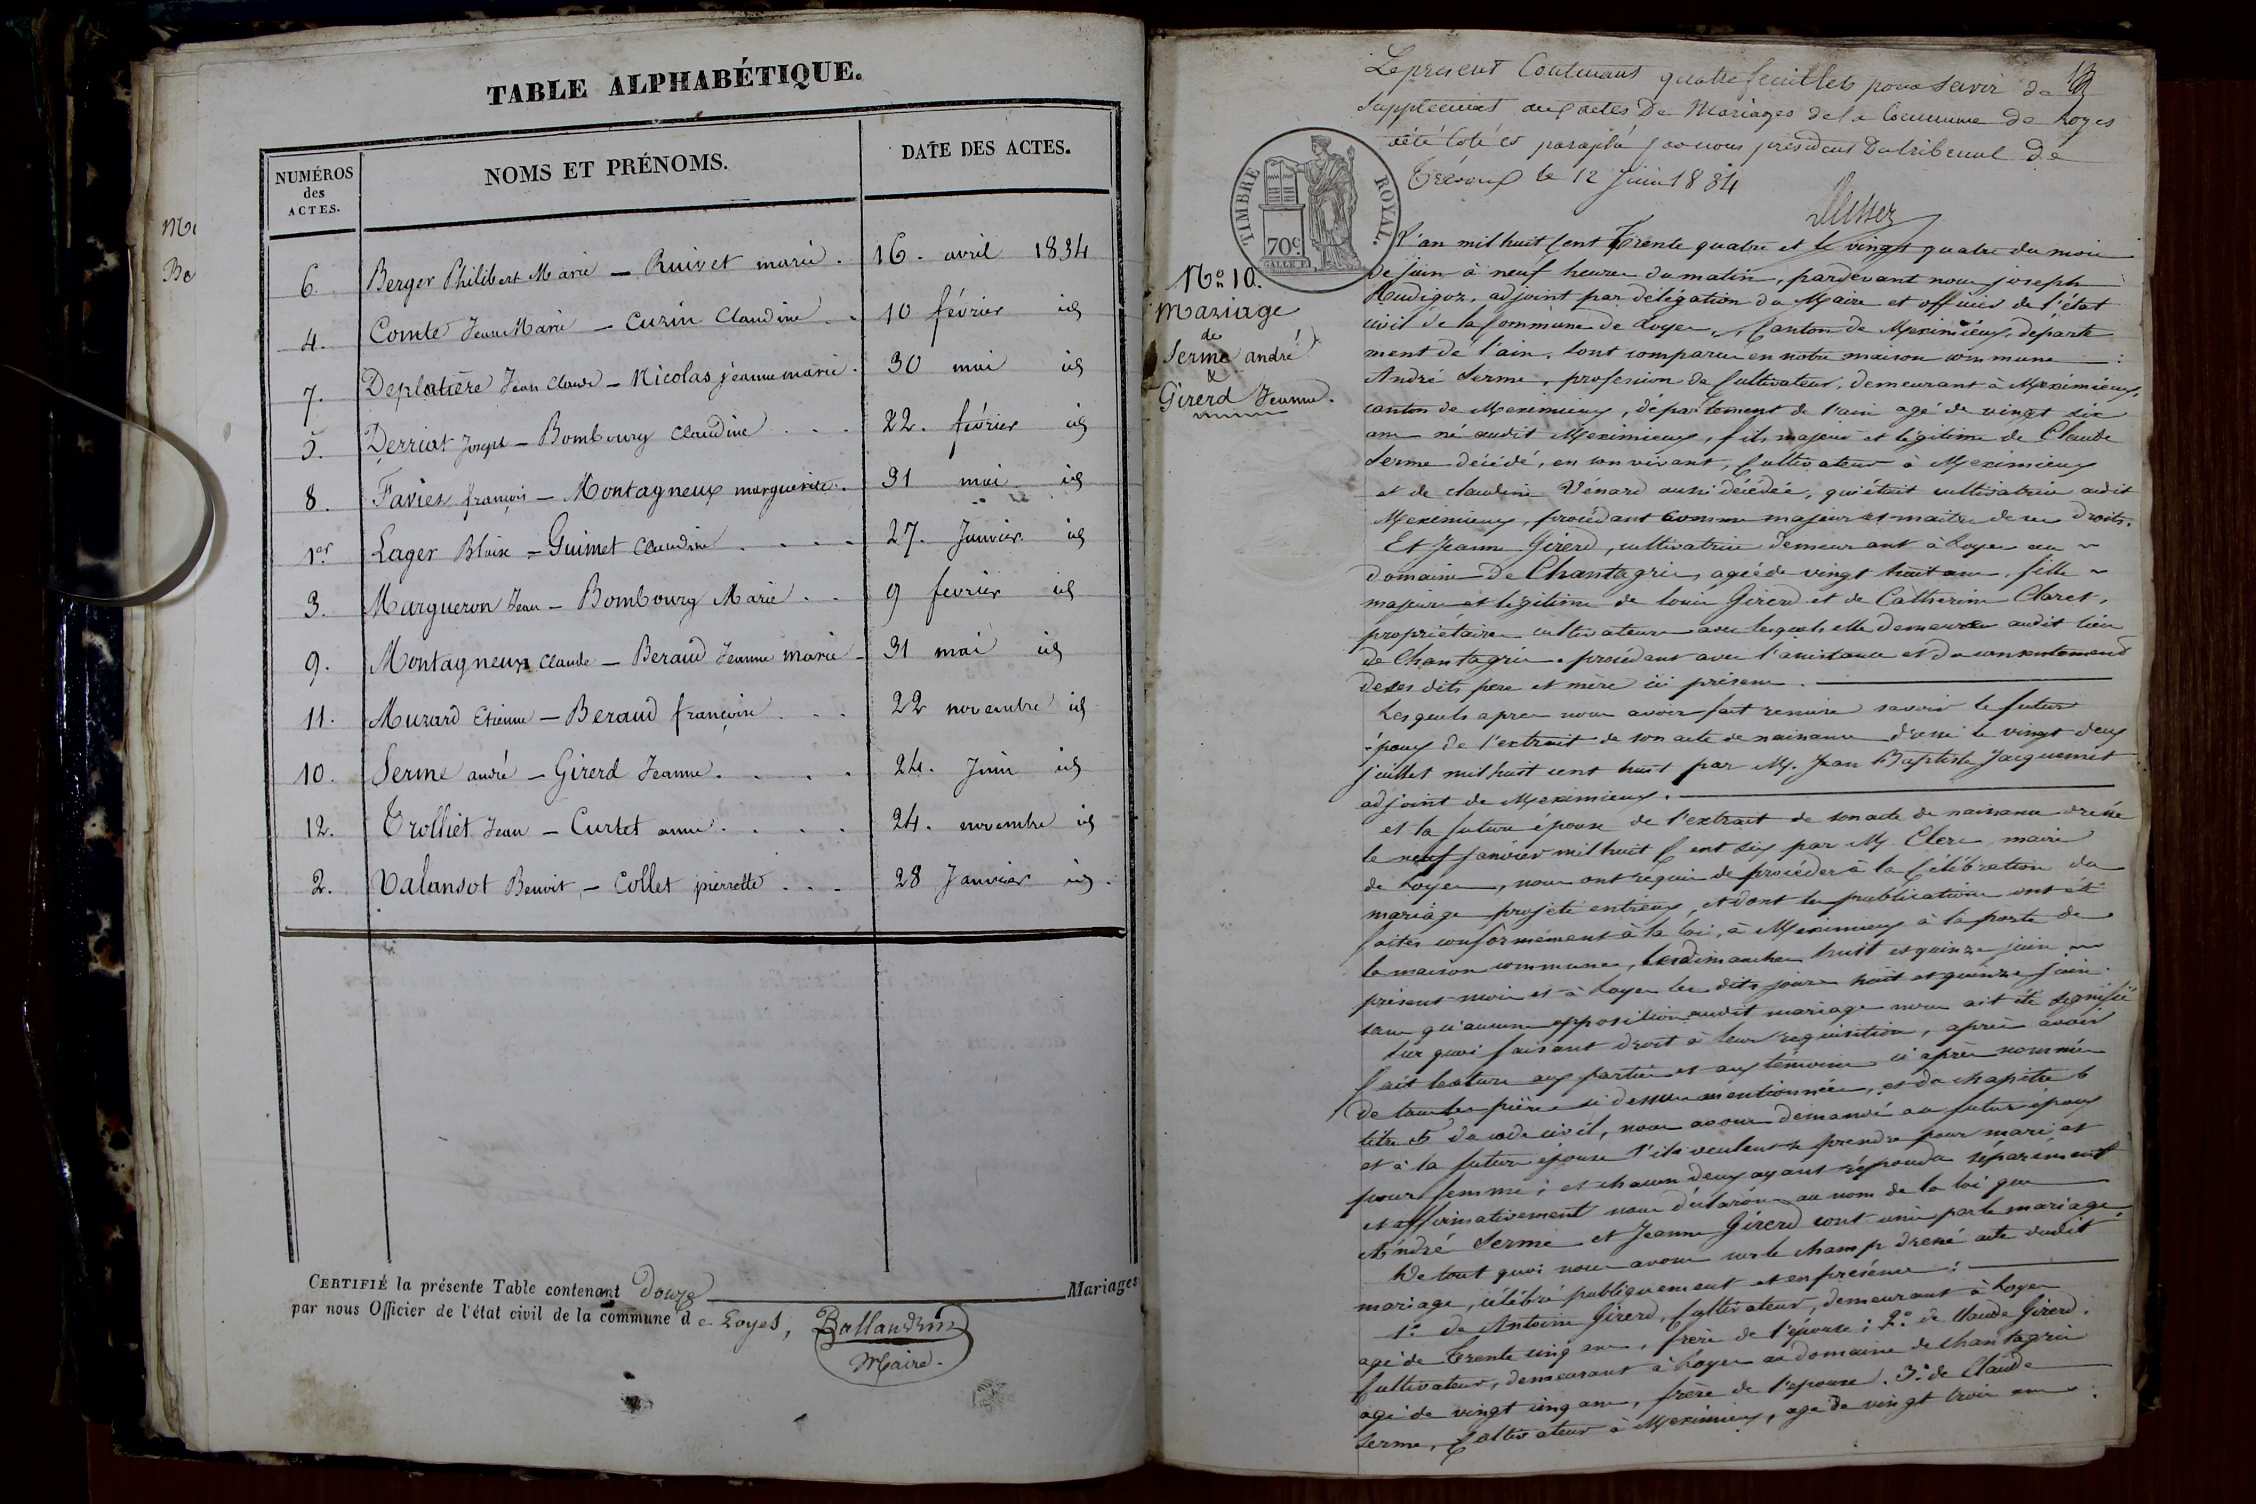 TABLE ALPHABÉTIQUE.
NUMÉROS
des
ACTES.
NOMS ET PRÉNOMS.
DATE DES ACTES.
6. Berger Philibert Marie — Ruivet marie. 16. avril 1834
4. Comte Jean Marie — Curin Claudine . . 10 février id
7. Deplatière Jean Claude — Nicolas jeanne marie. 30 mai id
5. Derriat Joseph — Bombourg Claudine . . . 22. février id
8. Favier françois — Montagneux marguerite. 31 mai id
1er. Lager Blaise — Guimet Claudine . . . . 27. Janvier id
3. Margueron Jean — Bombourg Marie . . 9 fevrier id
9. Montagneux Claude — Beraud Jeanne marie — 31 mai id
11. Murard Etienne — Beraud françoise . . . 22 novembre id
10. Serme andré — Girerd Jeanne . . . . 24. Juin id
12. Trolliet Jean — Curtet anne . . . . 24. novembre id
2. Valansot Benoit — Collet pierrette . . . 28 Janvier id.
CERTIFIÉ la présente Table contenant douze Mariages
par nous Officier de l'état civil de la commune de Loyes,
Ballandrin
Maire.
Le présent Contenant quatre feuillets pour servir de
Supplément aux actes De Mariages de la Commune de Loyes
a été Coté et paraphé par nous président Du tribunal De
Trévoux le 12 Juin 1834
TIMBRE ROYAL.
70c
No 10.
Mariage
de
Serme andré
&
Girerd Jeanne.
L'an mil huit Cent Trente quatre et le vingt quatre du mois
de juin à neuf heures du matin, pardevant nous joseph
Rudigoz, adjoint par délégation du Maire et officier de l'état
civil de la Commune de Loyes, Canton de Meximieux, départe
ment de l'ain, sont comparus en notre maison commune :
André Serme, profession de Cultivateur, demeurant à Meximieux,
canton de Meximieux, département de l'ain agé de vingt six
ans né audit Meximieux, fils majeur et légitime de Claude
Serme décédé, en son vivant, Cultivateur à Meximieux
et de claudine Vénard aussi décédée, qui était cultivatrice audit
Meximieux, procédant comme majeur et maitre de ses droits.
Et Jeanne Girerd, cultivatrice demeurant à Loyes au
domaine De Chantagrin, agée de vingt huit ans, fille
majeure et légitime de louis Girerd et de Catherine Claret,
propriétaires cultivateurs avec lesquels elle demeure audit lieu
de Chantagrin. procédant avec l'assistance et du consentement
de ses dits père et mère ici présens.
Lesquels apres nous avoir fait remise savoir le futur
époux de l'extrait de son acte de naissance dressé le vingt deux
juillet mil huit cent huit par M. Jean Baptiste Jacquemet
adjoint de Meximieux.
et la future épouse de l'extrait de son acte de naissance dressé
le neuf janvier mil huit Cent six par M Clerc maire
de Loyes, nous ont requis de procéder à la Célébration du
mariage projeté entreux, et dont les publications ont été
faites conformément à la loi, à Meximieux à la porte de
la maison commune, les dimanches huit et quinze juin
présent mois et à Loyes les dits jours huit et quinze juin.
sans qu'aucune opposition audit mariage nous ait été signifiée
Sur quoi faisant droit à leur réquisition, après avoir
fait lecture aux parties et aux témoins ci après nommés
de toutes les pièces ci dessus mentionnées, et du chapitre 6
titre 5 du code civil, nous avons demandé au futur époux
et à la future épouse s'ils veulent se prendre pour mari et
pour femme; et chacun deux ayant répondu séparément
et affirmativement nous déclarons au nom de la loi que
André Serme et Jeanne Girerd sont unis par le mariage.
De tout quoi nous avons sur le champ dressé acte dudit
mariage, célébré publiquement et en présence :
1o de Antoine Girerd, Cultivateur, demeurant à Loyes
agé de Trente cinq ans, frère de l'épouse; 2o de Claude Girerd.
Cultivateur, demeurant à Loyes au domaine de chantagrin
agé de vingt cinq ans, frère de l'épouse. 3o de Claude
Serme, Cultivateur à Meximieux, agé de vingt trois ans